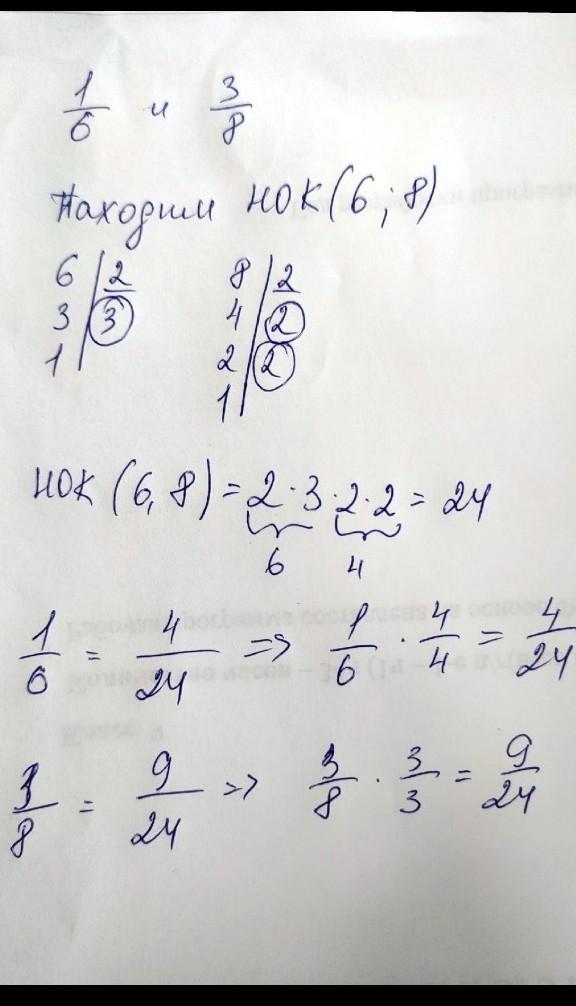 1/6 и 3/8
Находим НОК(6; 8)
6 | 2
3 | 3
1 |
8 | 2
4 | 2
2 | 2
1 |
НОК (6, 8) = 2 · 3 · 2 · 2 = 24
6 4
1/6 = 4/24 => 1/6 · 4/4 = 4/24
3/8 = 9/24 => 3/8 · 3/3 = 9/24